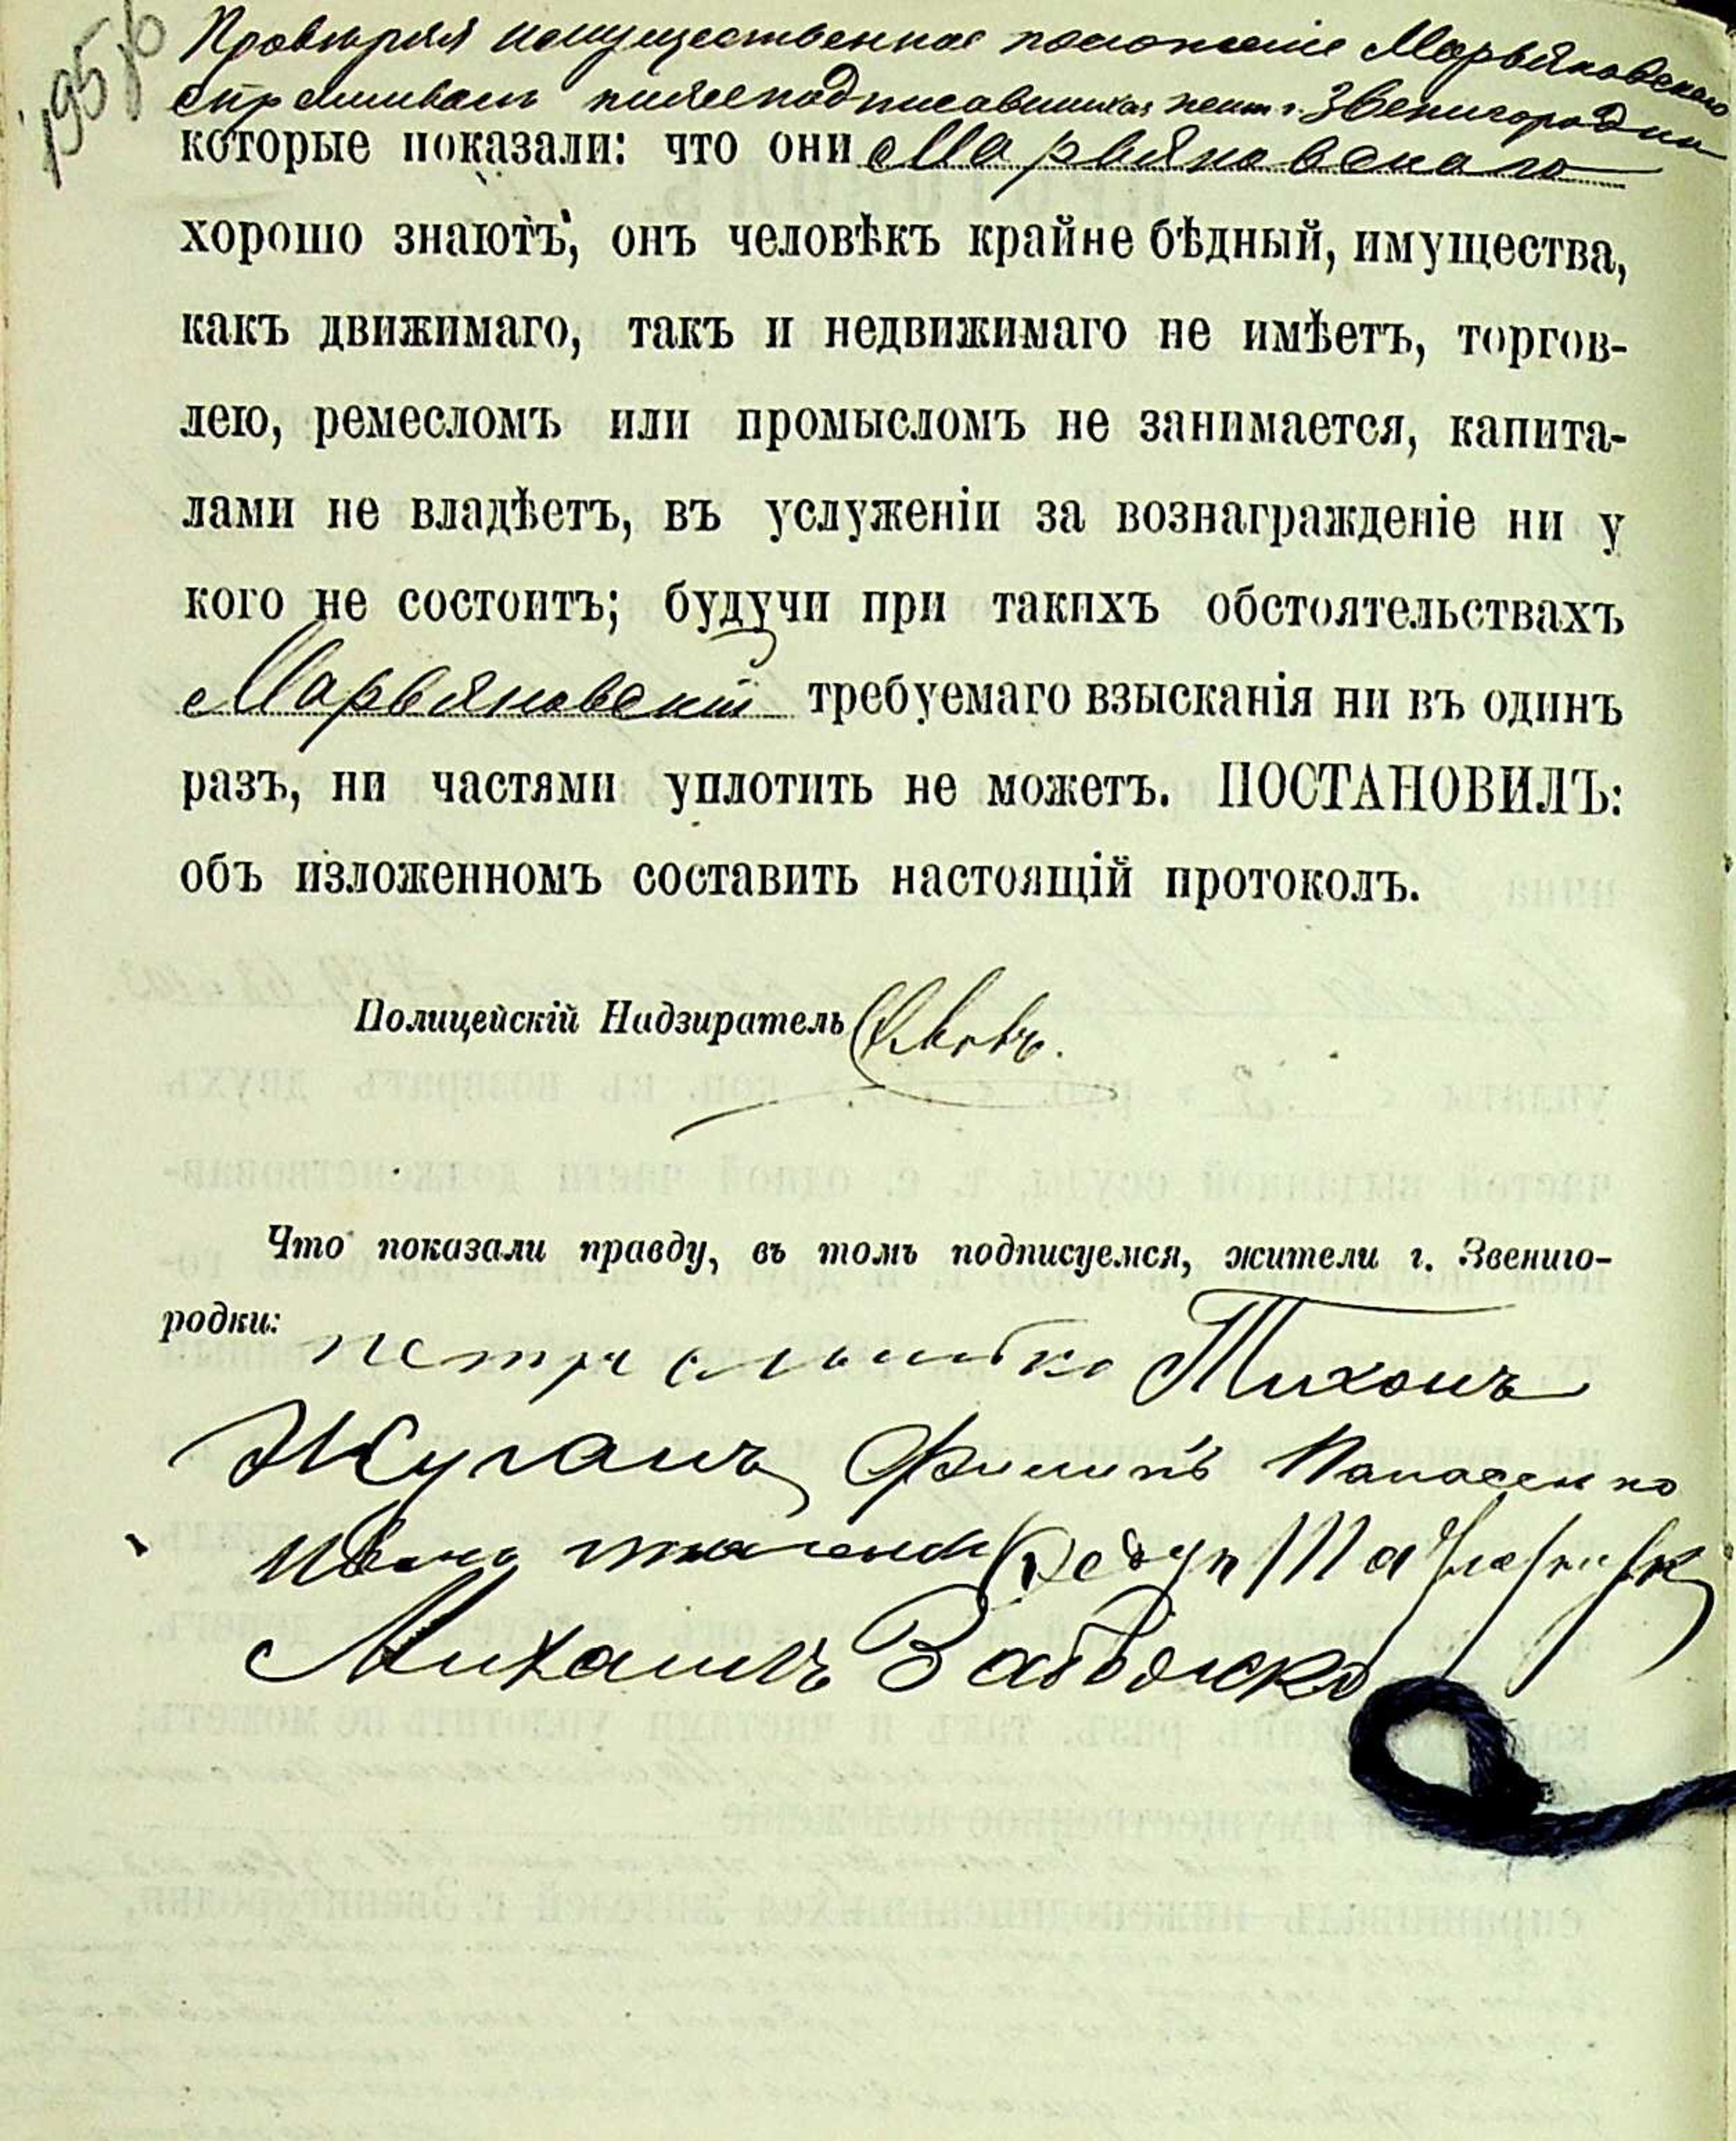 195 об
Провѣряя имущественное положеніе Марьяновскаго
спрашивалъ нижеподписавшихся жит. г. Звенигородки
которые показали: что они Марьяновскаго
хорошо знаютъ, онъ человѣкъ крайне бѣдный, имущества,
какъ движимаго, такъ и недвижимаго не имѣетъ, торгов-
лею, ремесломъ или промысломъ не занимается, капита-
лами не владѣетъ, въ услуженіи за вознагражденіе ни у
кого не состоитъ; будучи при такихъ обстоятельствахъ
Марьяновскій требуемаго взысканія ни въ одинъ
разъ, ни частями уплотить не можетъ. ПОСТАНОВИЛЪ:
объ изложенномъ составить настоящій протоколъ.
Полицейскій Надзиратель
Что показали правду, въ томъ подписуемся, жители г. Звениго-
родки:
петръ Тихонъ
Жуганъ Филипъ Панасенко
Иванъ
Михаилъ